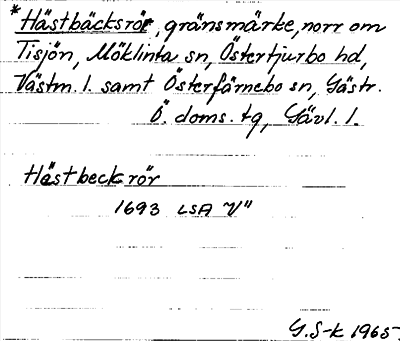 *Hästbäcksrör, gränsmärke, norr om
Tisjön, Möklinta sn, Östertjurbo hd,
Västm. l. samt Österfärnebo sn, Gästr.
Ö. doms. tg, Gävl. l.
Hästbeck rör
1693 LSA V"
G. S-k 1965.